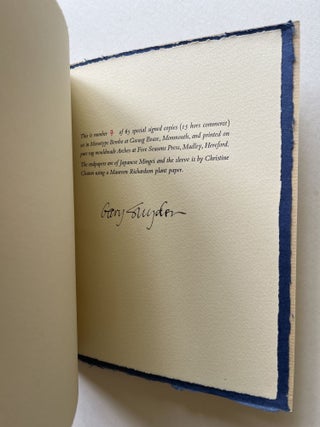 This is number 9 of 85 special signed copies (15 hors commerce)
set in Monotype Bembo at Gwasg Evans, Monmouth, and printed on
pure rag mouldmade Arches at Five Seasons Press, Madley, Hereford.
The endpapers are of Japanese Mingei and the sleeve is by Christine
using a Maureen Richardson plant paper.
Gary Snyder